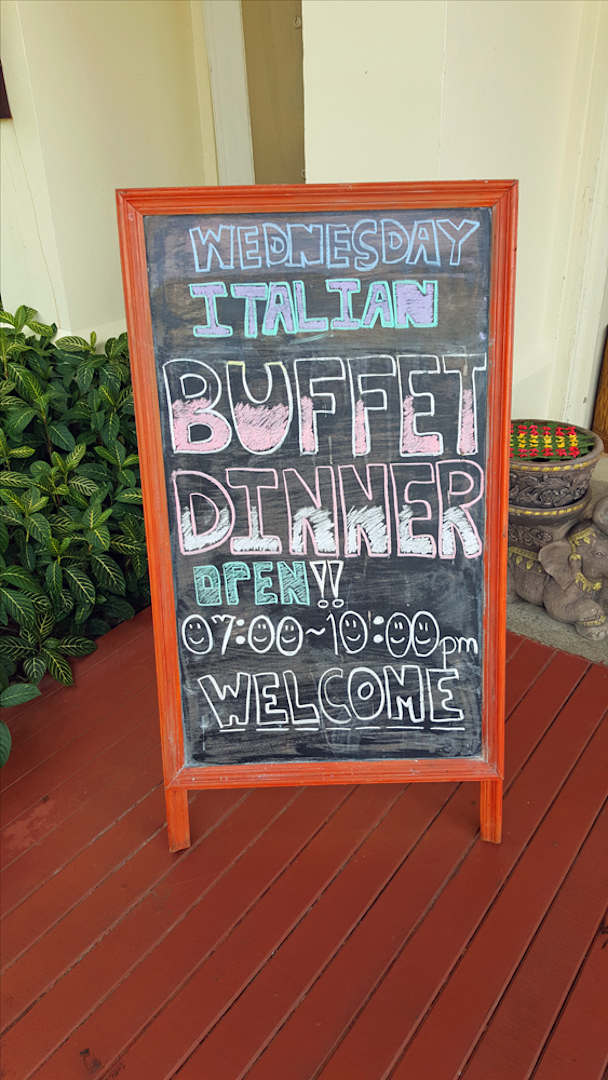 WEDNESDAY
ITALIAN
BUFFET
DINNER
OPEN!!
07:00~10:00pm
WELCOME